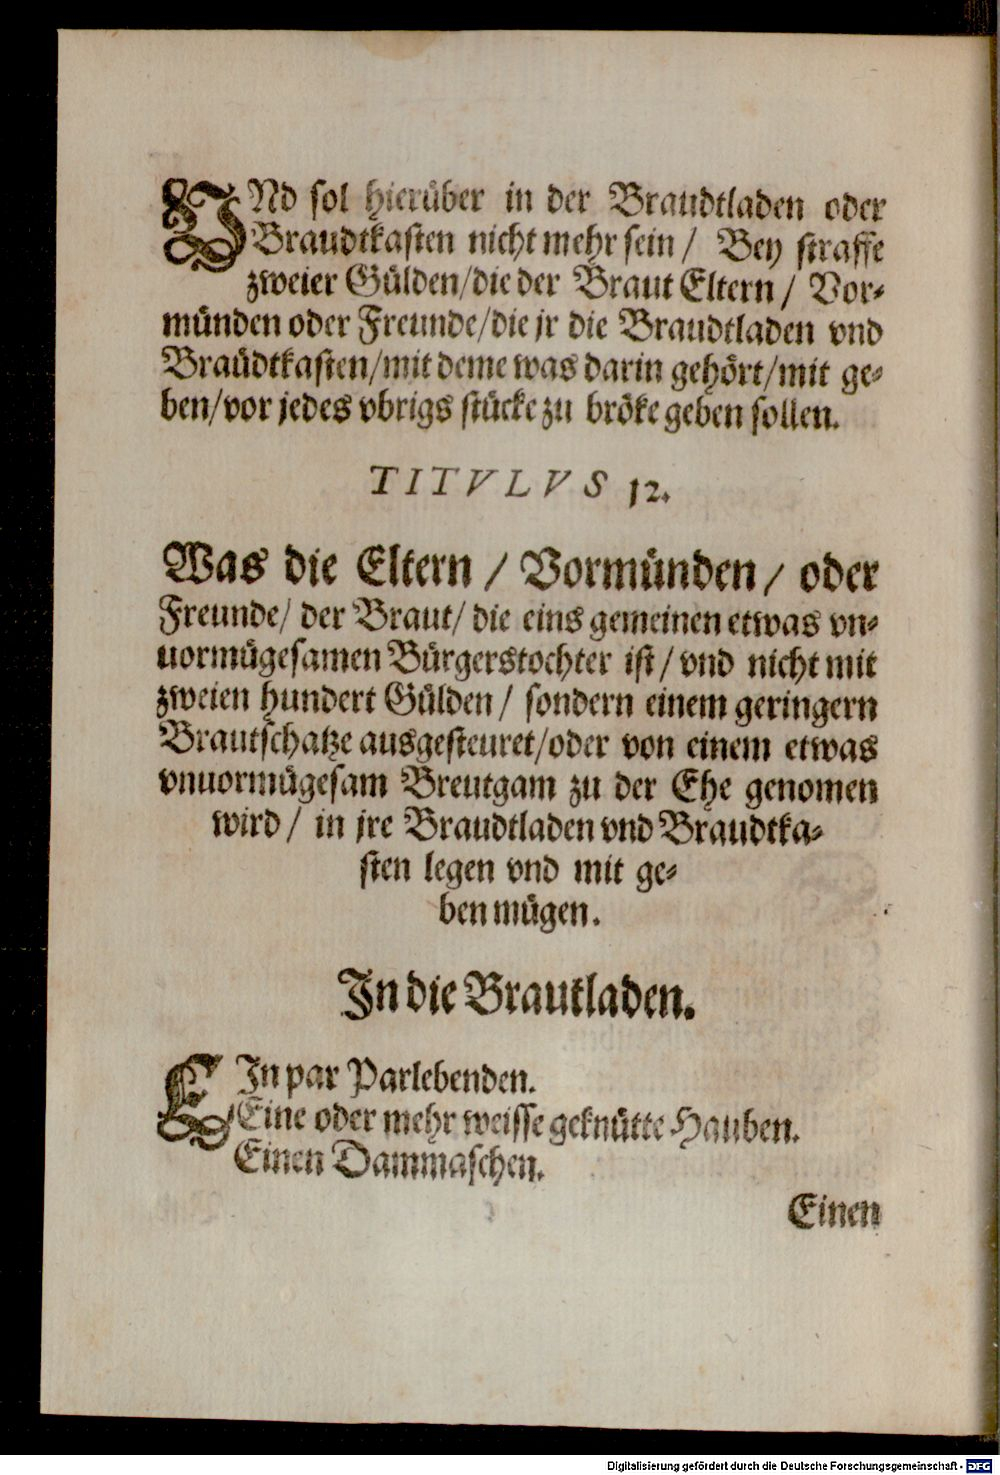 VNd sol hierüber in der Braudtladen oder
Braudtkasten nicht mehr sein / Bey straffe
zweier Gülden/die der Braut Eltern / Vor-
münden oder Freunde/die jr die Braudtladen vnd
Braüdtkasten/mit deme was darin gehört/mit ge-
ben/vor jedes vbrigs stücke zu bröke geben sollen.
TITVLVS 12.
Was die Eltern / Vormünden / oder
Freunde/ der Braut/ die eins gemeinen etwas vn-
uormügesamen Bürgerstochter ist / vnd nicht mit
zweien hundert Gülden / sondern einem geringern
Brautschatze ausgesteuret/oder von einem etwas
vnuormügesam Breutgam zu der Ehe genomen
wird / in jre Braudtladen vnd Braudtka-
sten legen vnd mit ge-
ben mügen.
In die Brautladen.
EIn par Parlebenden.
Eine oder mehr weisse geknütte Hauben.
Einen Dammaschen.
Einen
Digitalisierung gefördert durch die Deutsche Forschungsgemeinschaft - DFG